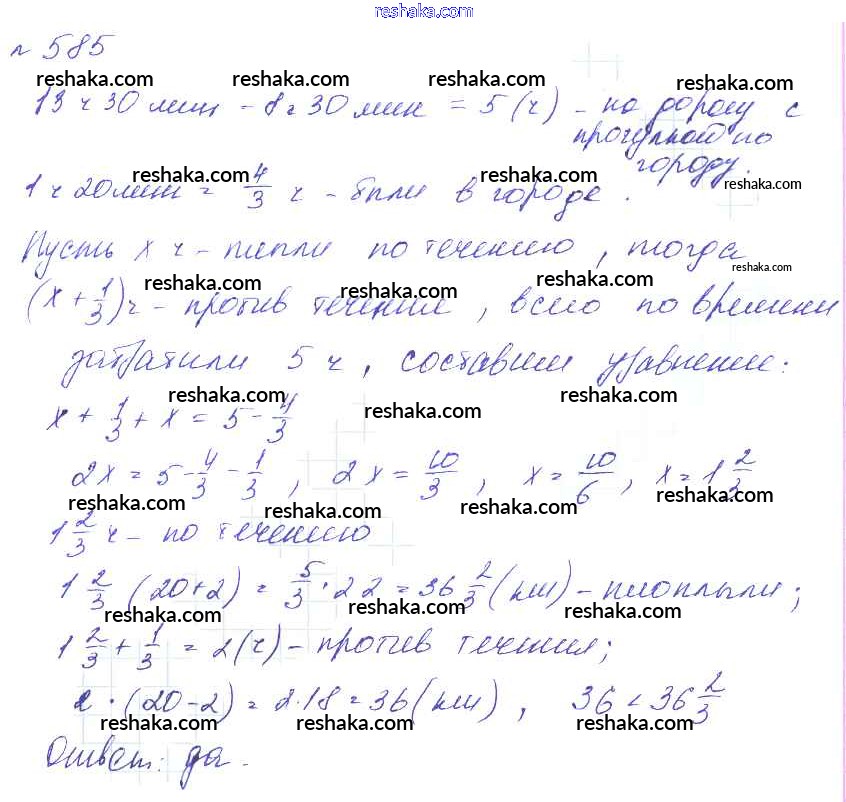 reshaka.com
№ 585
reshaka.com reshaka.com reshaka.com reshaka.com
13 ч 30 мин - 8 ч 30 мин = 5 (ч) - на дорогу с
прогулкой по
городу.
reshaka.com reshaka.com reshaka.com
1 ч 20 мин = 4/3 ч - были в городе.
Пусть x ч - плыли по течению, тогда
reshaka.com reshaka.com reshaka.com reshaka.com
(x + 1/3) ч - против течения, всего по времени
затратили 5 ч, составим уравнение:
reshaka.com reshaka.com reshaka.com
x + 1/3 + x = 5 - 4/3
2x = 5 - 4/3 - 1/3, 2x = 10/3, x = 10/6, x = 1 2/3
reshaka.com reshaka.com reshaka.com reshaka.com
1 2/3 ч - по течению
1 2/3 (20+2) = 5/3 · 22 = 36 2/3 (км) - проплыли;
reshaka.com reshaka.com reshaka.com
1 2/3 + 1/3 = 2 (ч) - против течения;
2 · (20-2) = 2·18 = 36 (км), 36 < 36 2/3
reshaka.com reshaka.com reshaka.com
Ответ: да.